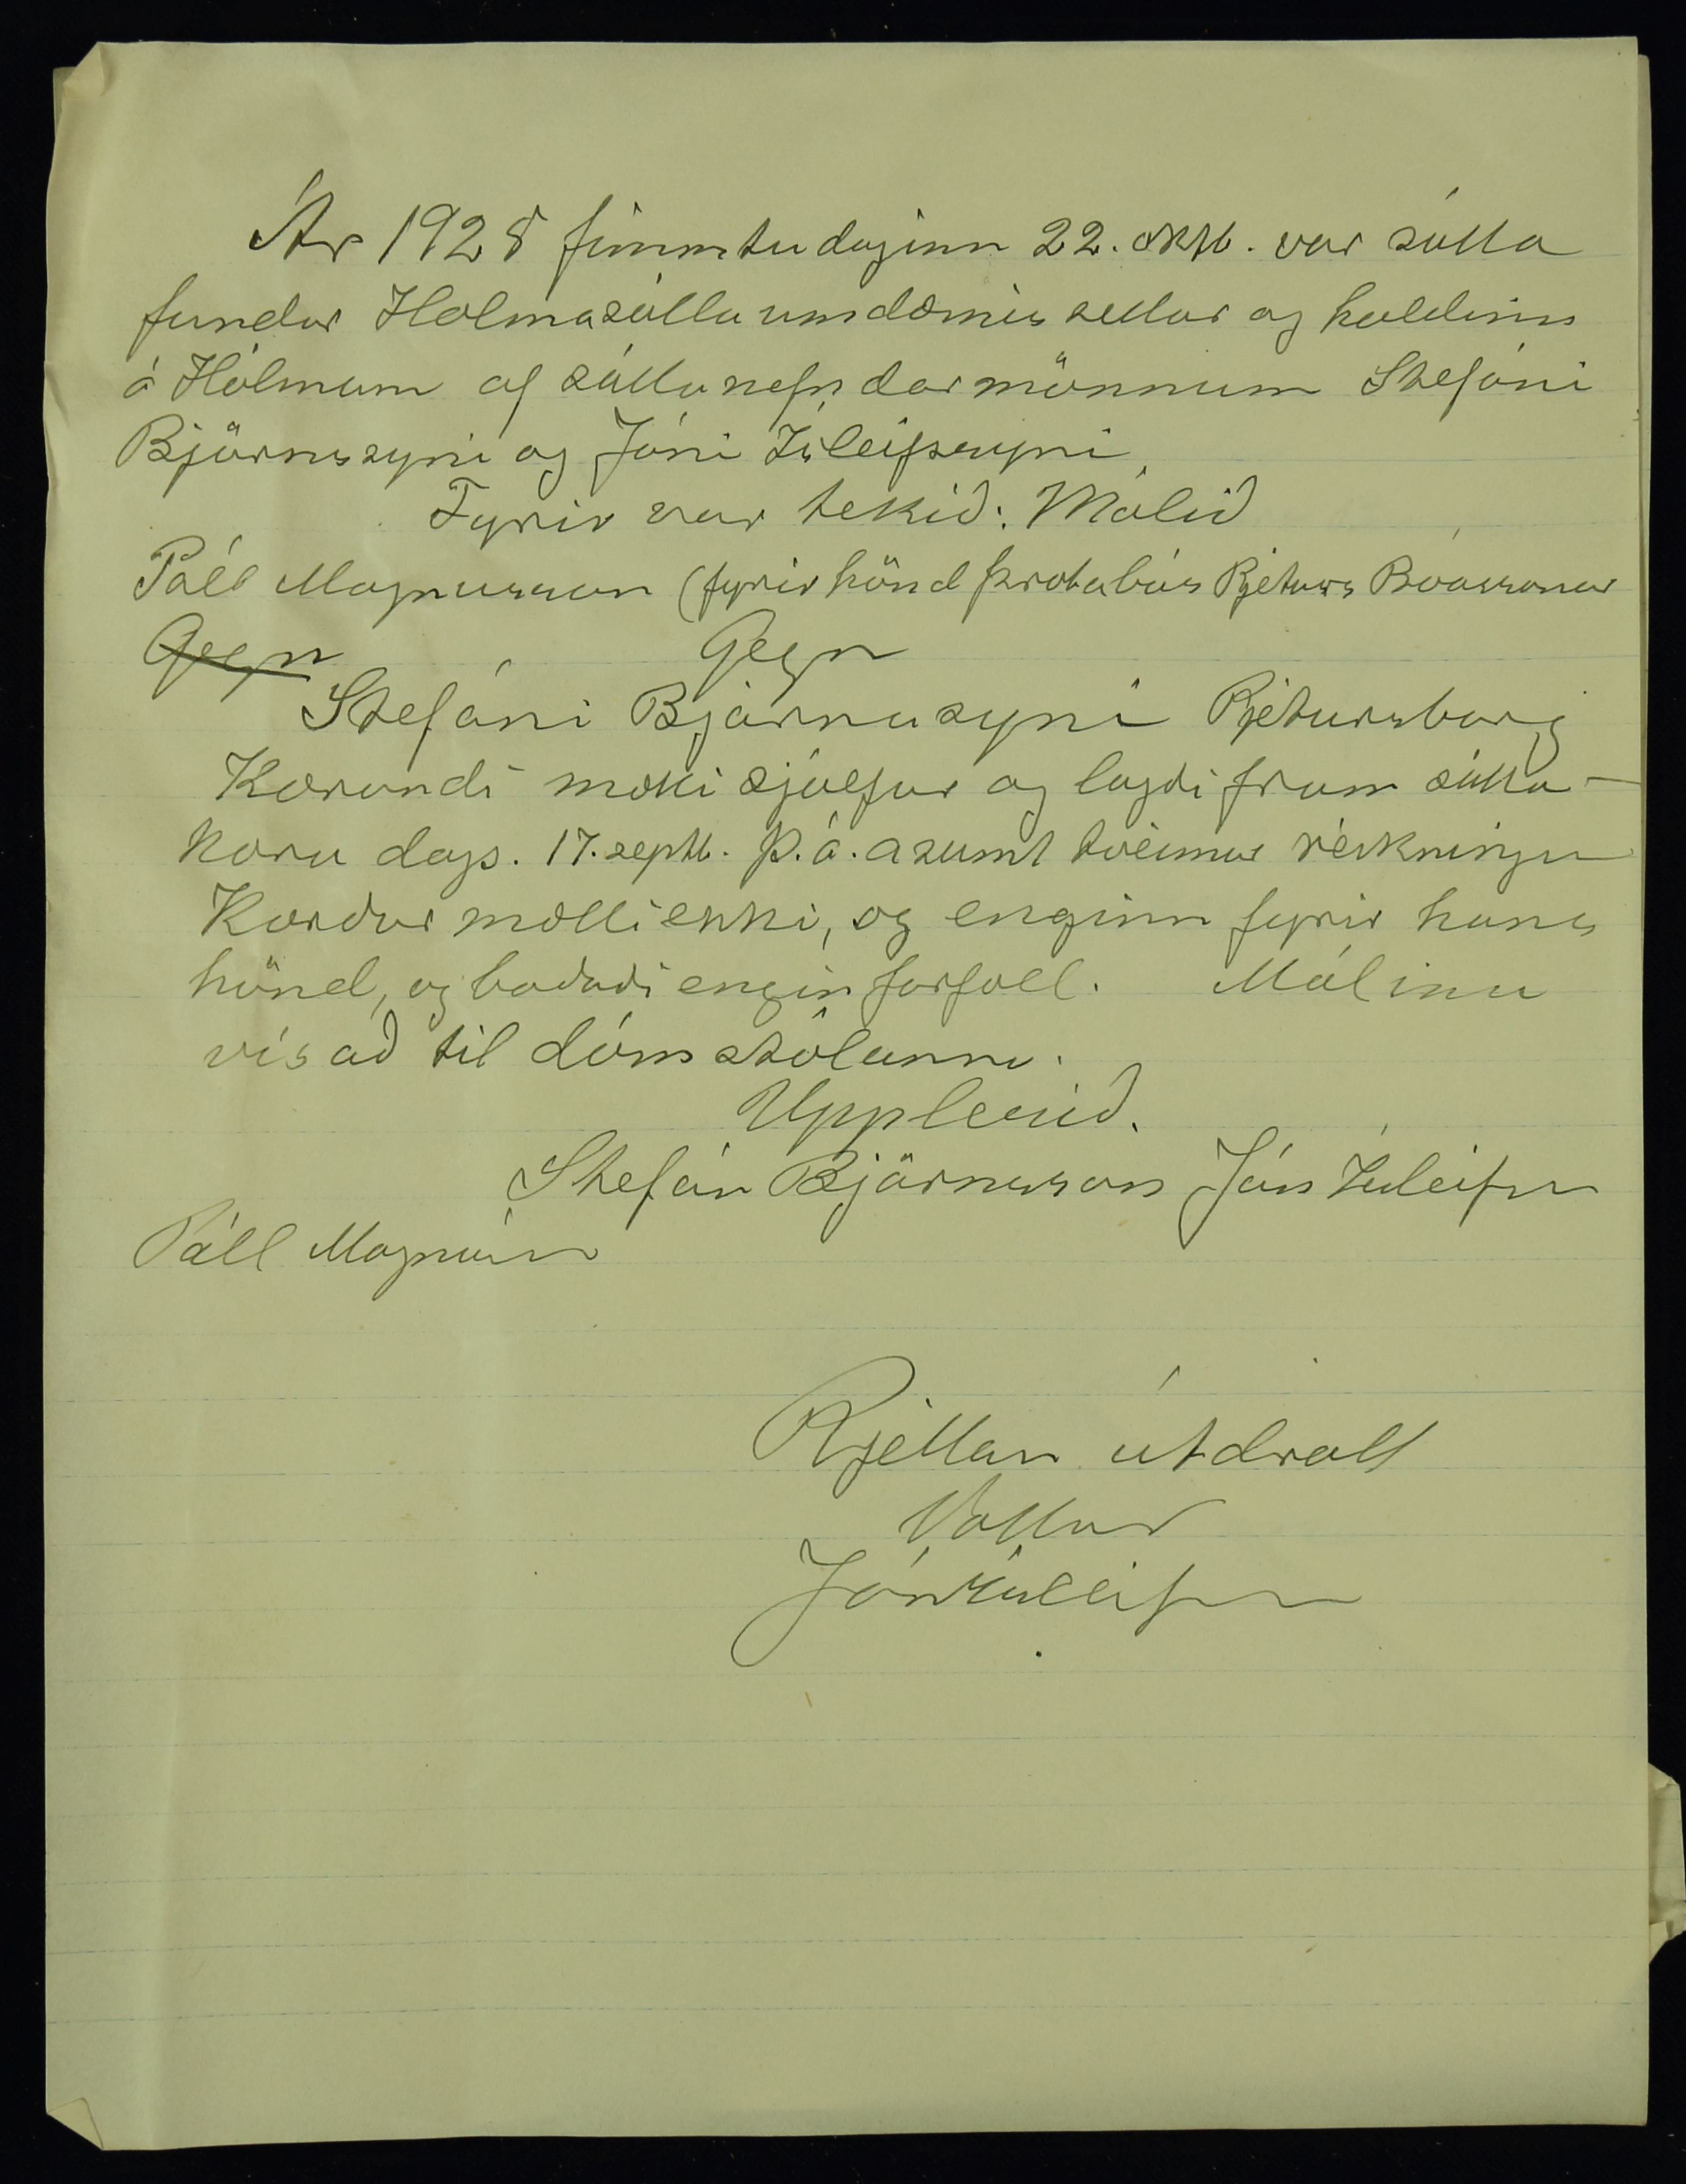 Ár 1925 fimmtudaginn 22. oktb. var sátta
fundur Hólmasáttaumdæmis settur og haldinn
á Hólmum af sáttanefndarmönnum Stefáni
Björnssyni og Jóni Ísleifssyni
Fyrir var tekið: Málið
Páll Magnusson (fyrir hönd þrotabús Pjeturs Bóassonar
Gegn Gegn
Stefáni Bjarnasyni Pjetursborg
Kærandi mætti sjálfur og lagdi fram sátta-
kæru dags. 17. septb. þ.á. ásamt tveimur reikningum
Kærður mætti ekki, og enginn fyrir hans
hönd, og bodadi engin forföll. Málinu
vísað til dómstólanna.
Upplesið.
Stefán Björnsson Jón Ísleifsson
Páll Magnússon
Rjettan útdrátt
Vottar
Jón Ísleifsson